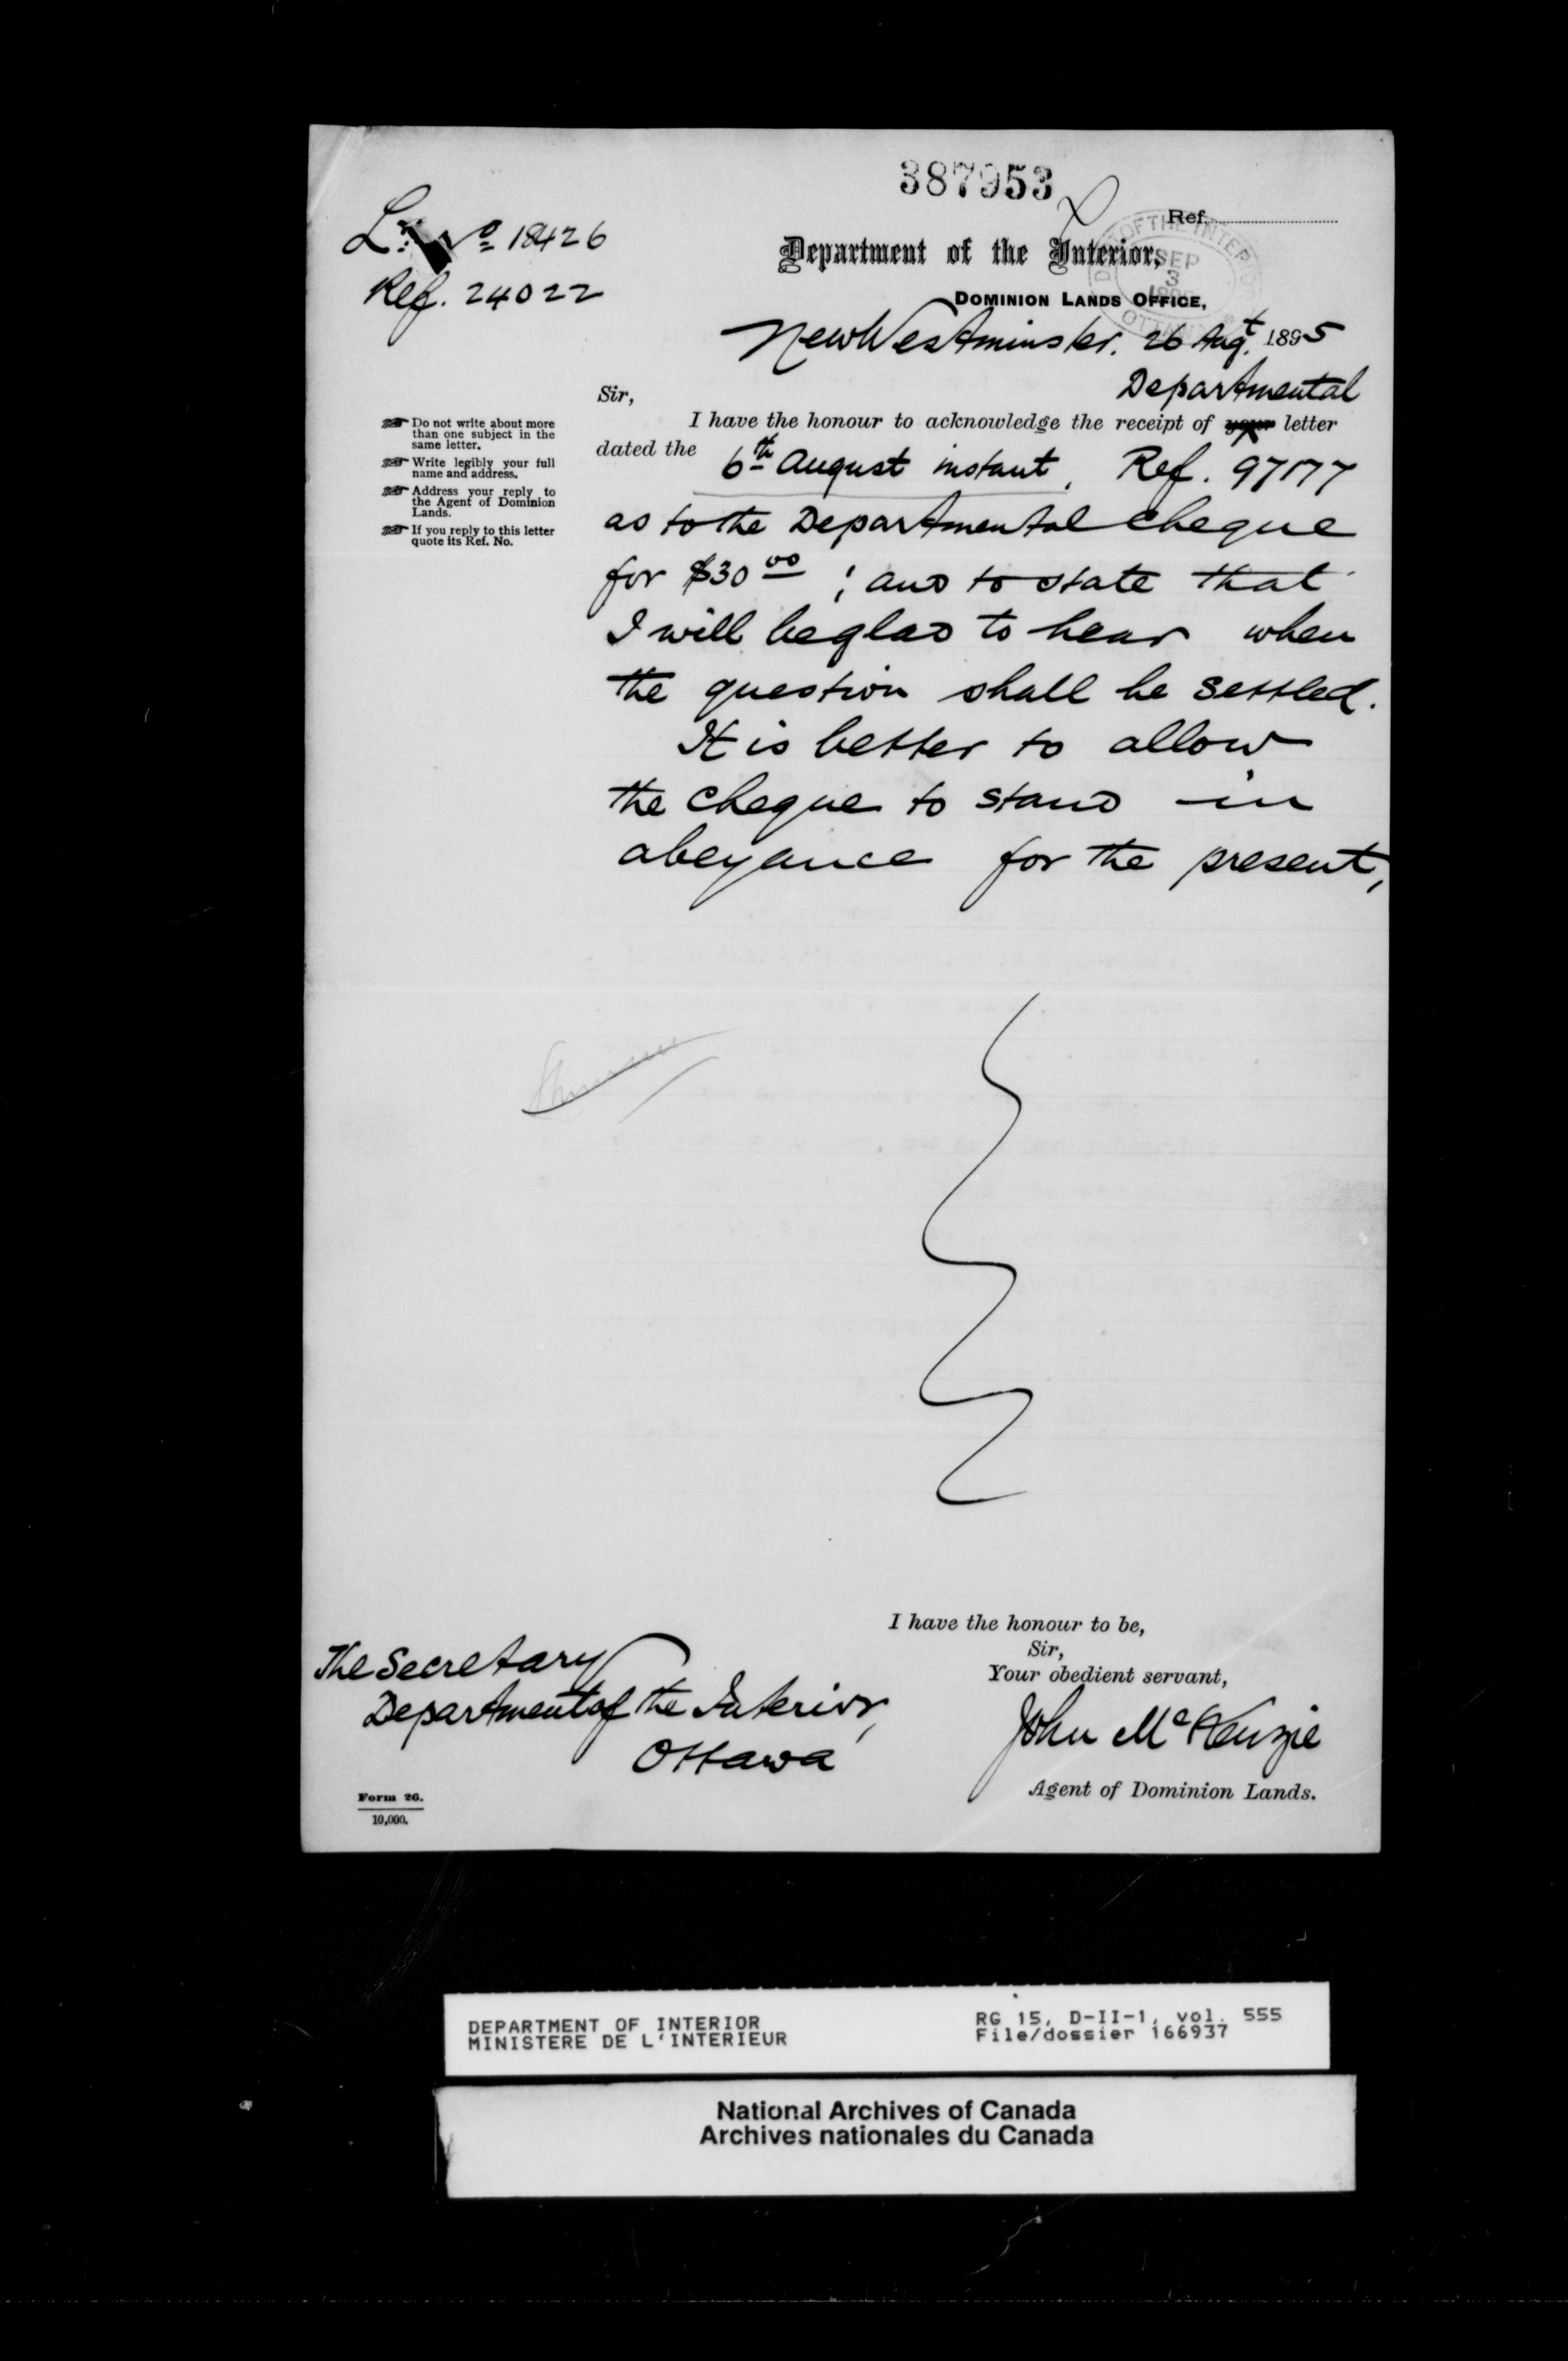 387953
Lr. No 18426
Ref. 24022
Ref.
Department of the Interior,
DOMINION LANDS OFFICE,
DEPT OF THE INTERIOR
SEP
3
OTTAWA
New Westminster. 26 Augt. 1895
Sir,
Departmental
I have the honour to acknowledge the receipt of your letter
dated the 6th August instant, Ref. 97177
as to the Departmental Cheque
for $30 00 ; and to state that
I will be glad to hear when
the question shall be settled.
It is better to allow
the cheque to stand in
abeyance for the present,
Do not write about more
than one subject in the
same letter.
Write legibly your full
name and address.
Address your reply to
the Agent of Dominion
Lands.
If you reply to this letter
quote its Ref. No.
I have the honour to be,
Sir,
Your obedient servant,
John McKenzie
Agent of Dominion Lands.
The Secretary
Department of the Interior,
Ottawa
Form 26.
10,000.
DEPARTMENT OF INTERIOR
MINISTERE DE L'INTERIEUR
RG 15, D-II-1, vol. 555
File/dossier 166937
National Archives of Canada
Archives nationales du Canada